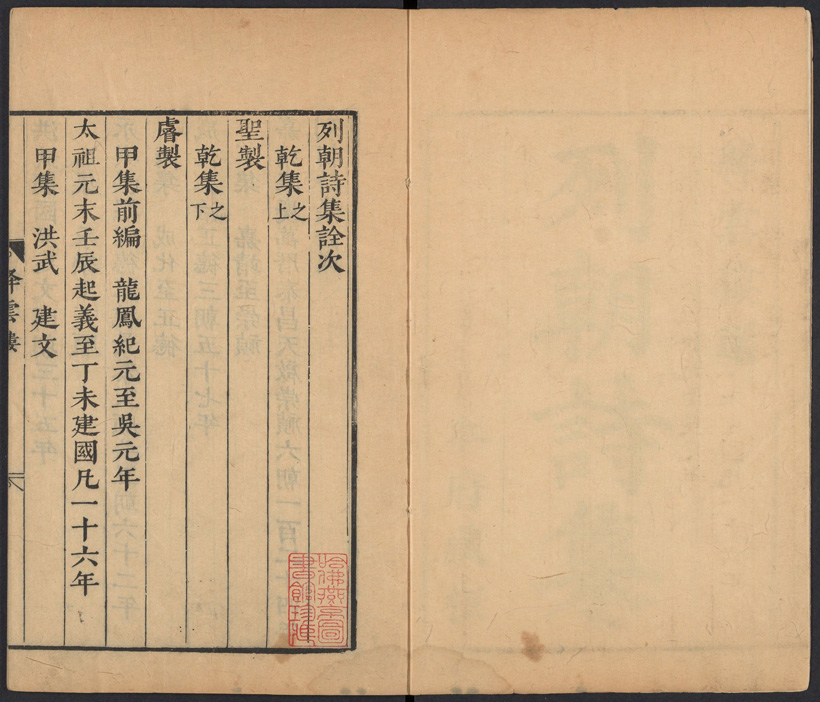 列朝詩集詮次
乾集之上
聖製
乾集之下
睿製
甲集前編　龍鳳紀元至吳元年
太祖元末壬辰起義至丁未建國凡一十六年
甲集　洪武　建文
絳雲樓
哈佛燕京圖
書館珍藏